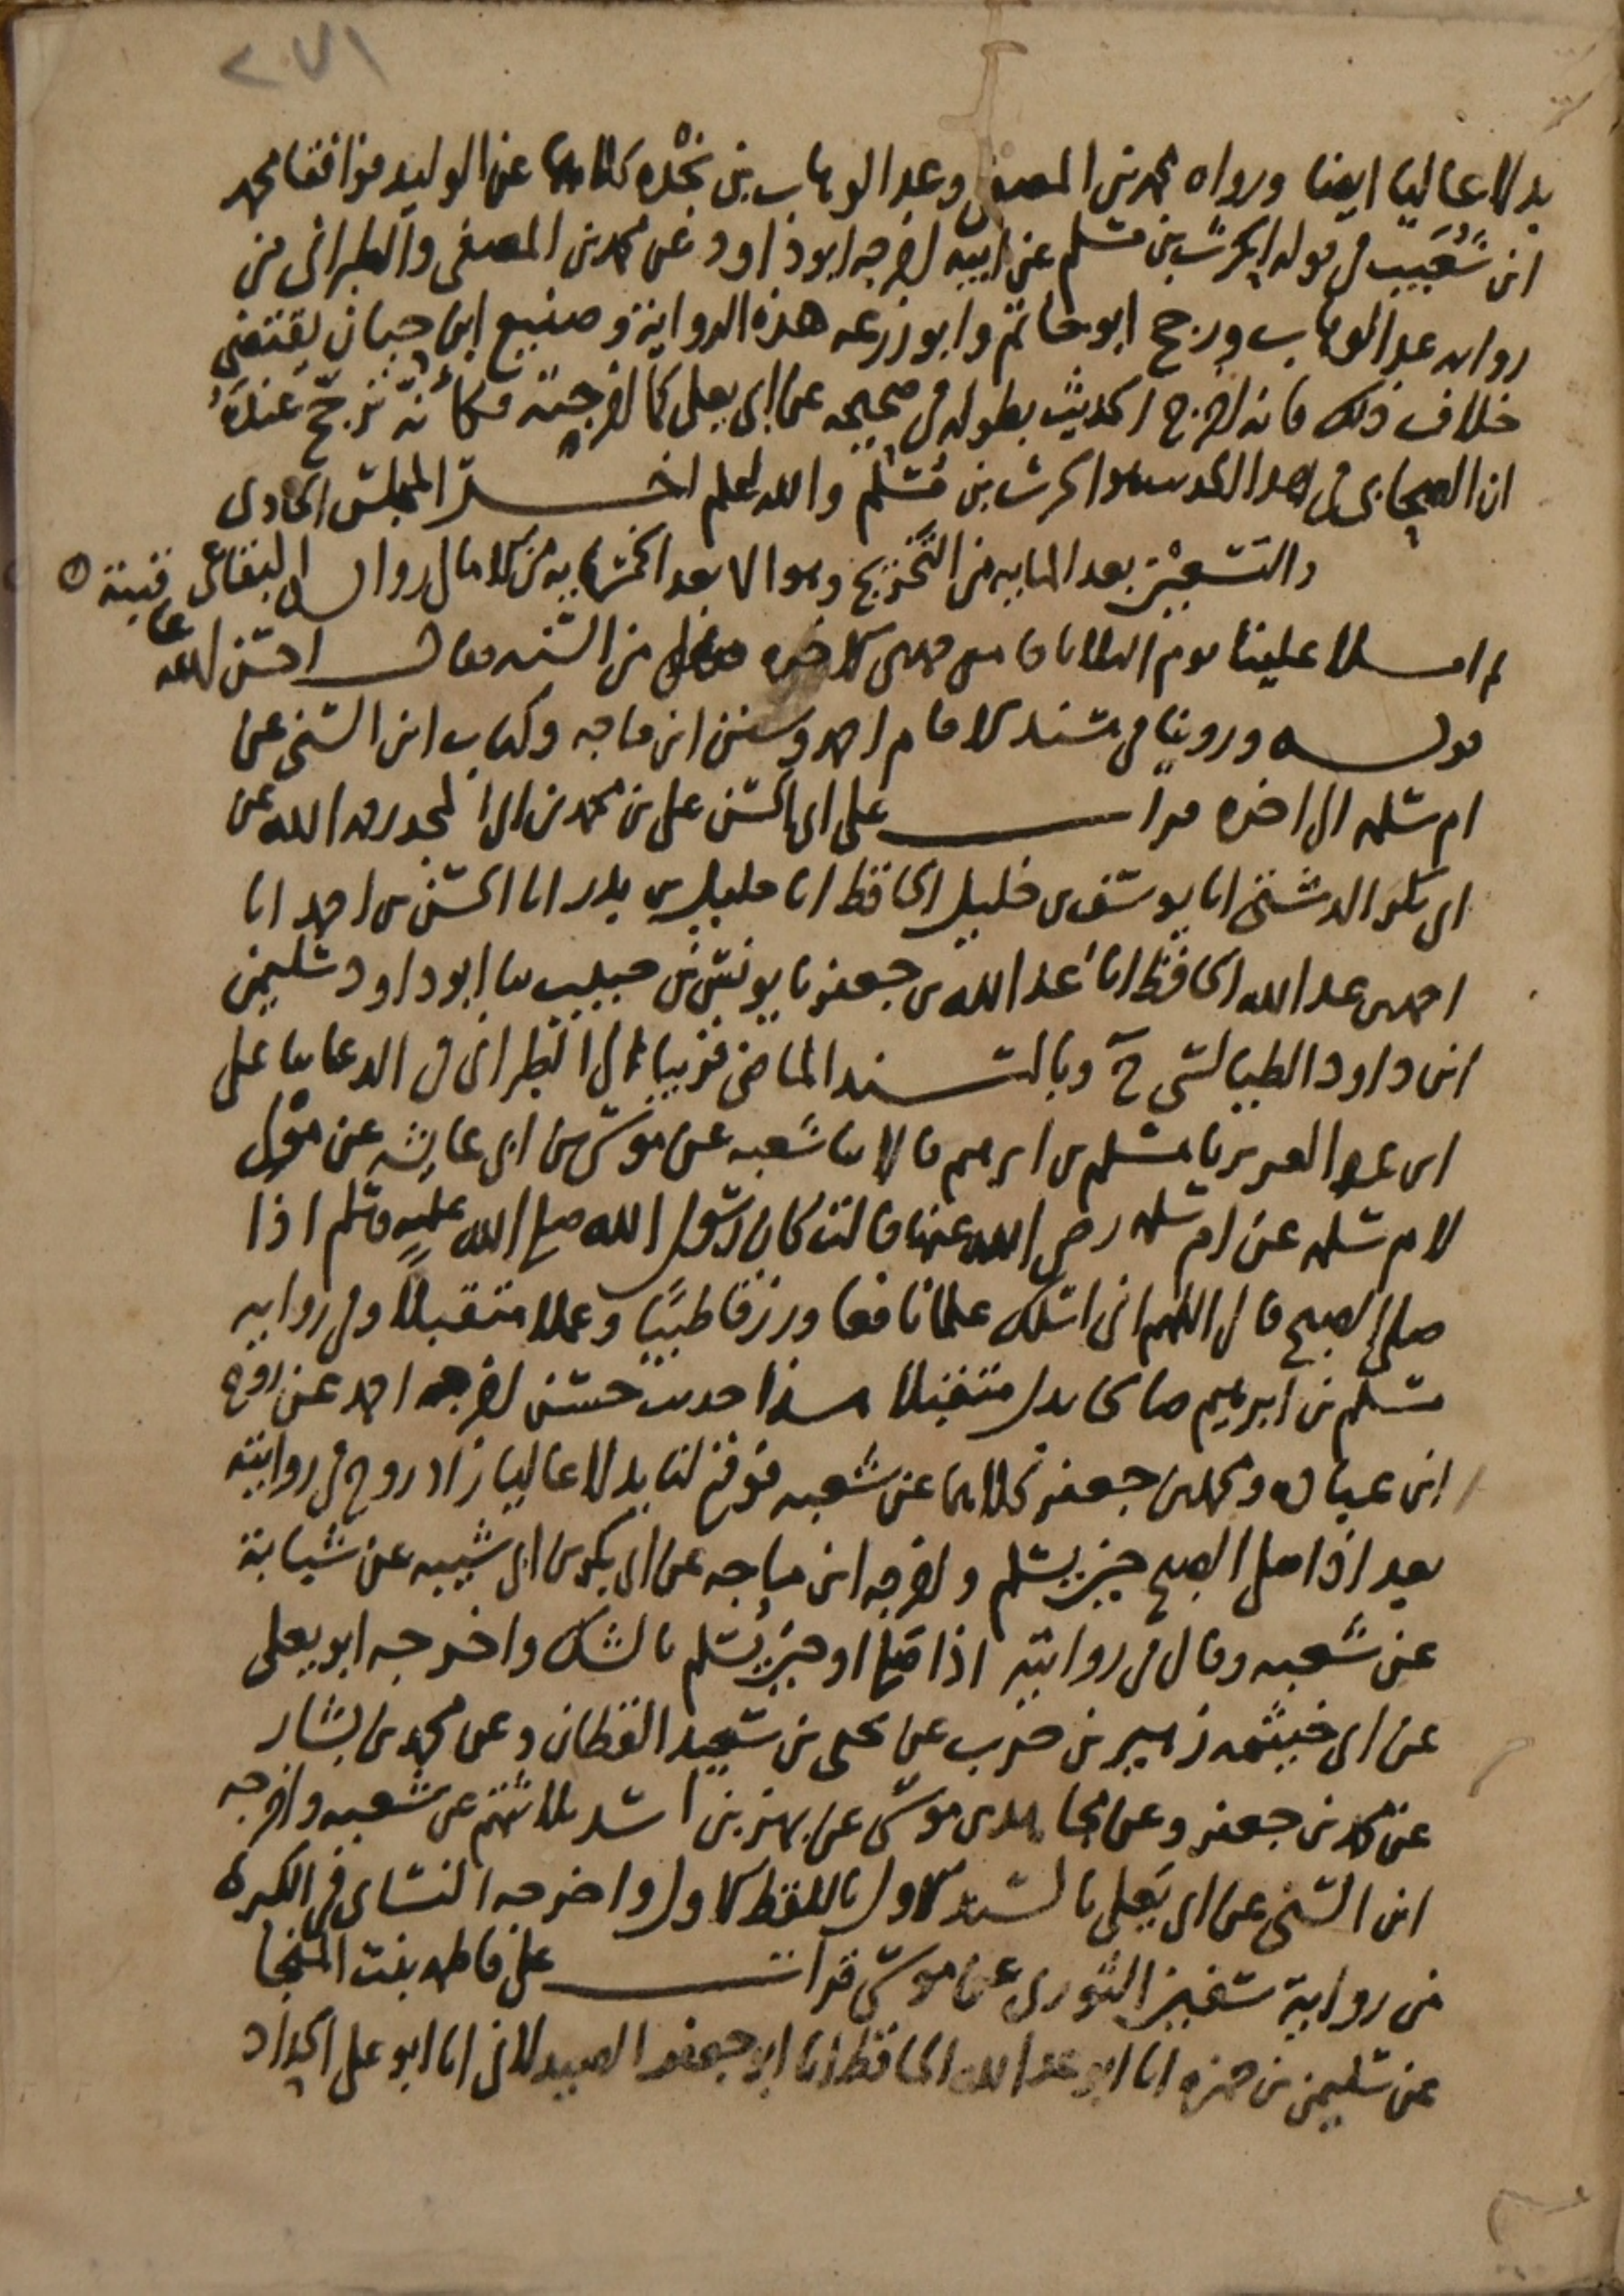 ٢٧١
بدلا عاليا ايضا ورواه محمد بن المصفى وعبد الوهاب بن نجْده كلاهما عن الوليد فوافقا محمد
ابن شُعَيب في قوله الحرث بن مسلم عن ابيه اخرجه ابو داود عن محمد بن المصفى والطبراني من
روايه عبد الوهاب ورجح ابو حاتم وابو زرعه هذه الرواية وصنيع ابن حبان يقتضي
خلاف ذلك فانه اخرج الحديث بطوله في صحيحه عن ابي يعلى كما اخرجته فكأنّه ترجّح عندَهُ
ان الصحابي في هذا الحديث هو الحرث بن مُسْلم والله اعلم اخر المجلس الحادي
والتسعين بعد المايه من التخريج وهو الا بعد الخمسمايه من الامالي رواية البقاعي
ثم املا علينا يوم الثلاثا من جمادى الاخره من السنه فقال احسن الله
قوله وروينا في مسند الامام احمد وسنن ابن ماجه وكتاب ابن السني عن
ام سلمه الى اخره قرات على ابي الحسن علي بن محمد بن ابي المجد رحمه الله عن
ابي بكر الدشتي انا يوسف بن خليل الحافظ انا خليل بن بدر انا الحسن بن احمد انا
احمد بن عبد الله الحافظ انا عبد الله بن جعفر نا يونس بن حبيب ثنا ابو داود سليمن
ابن داود الطيالسي ح وبالسند الماضي قريبا الى الطبراني في الدعا ثنا علي
ابن عبد العزيز نا مسلم بن ابرهيم قالا ثنا شعبه عن موسى بن ابي عايشه عن مولى
لام سلمه عن ام سلمه رضي الله عنها قالت كان رسول الله صلى الله عليه وسلم اذا
صلى الصبح قال اللهم اني اسئلك علما نافعا ورزقا طيبًا وعملا متقبلا وفي رواية
مسلم بن ابرهيم صالحا بدل متقبلا هذا حديث حسن اخرجه احمد عن روح
ابن عباده ومحمد بن جعفر كلاهما عن شعبه فوقع لنا بدلا عاليا زاد روح في روايته
بعد اذا صلى الصبح حين يسلم واخرجه ابن ماجه عن ابي بكر بن ابي شيبه عن شبابة
عن شعبه وقال في روايته اذا صلى او حين يُسلم بالشك واخرجه ابو يعلى
عن ابي خيثمه زهير بن حرب عن يحيى بن سعيد القطان وعن محمد بن بشار
عن محمد بن جعفر وعن مجاهد بن موسى عن بهز بن اسد ثلاثتهم عن شعبه واخرجه
ابن السني عن ابي يَعلى بالسند الاول باللفظ الاول واخرجه النسائ في الكبرى
من رواية سفين الثوري عن موسى قرات على فاطمه بنت المنجا
عن سليمن بن حمزه انا ابو عبد الله الحافظ انا ابو جعفر الصيدلاني انا ابو علي الحداد